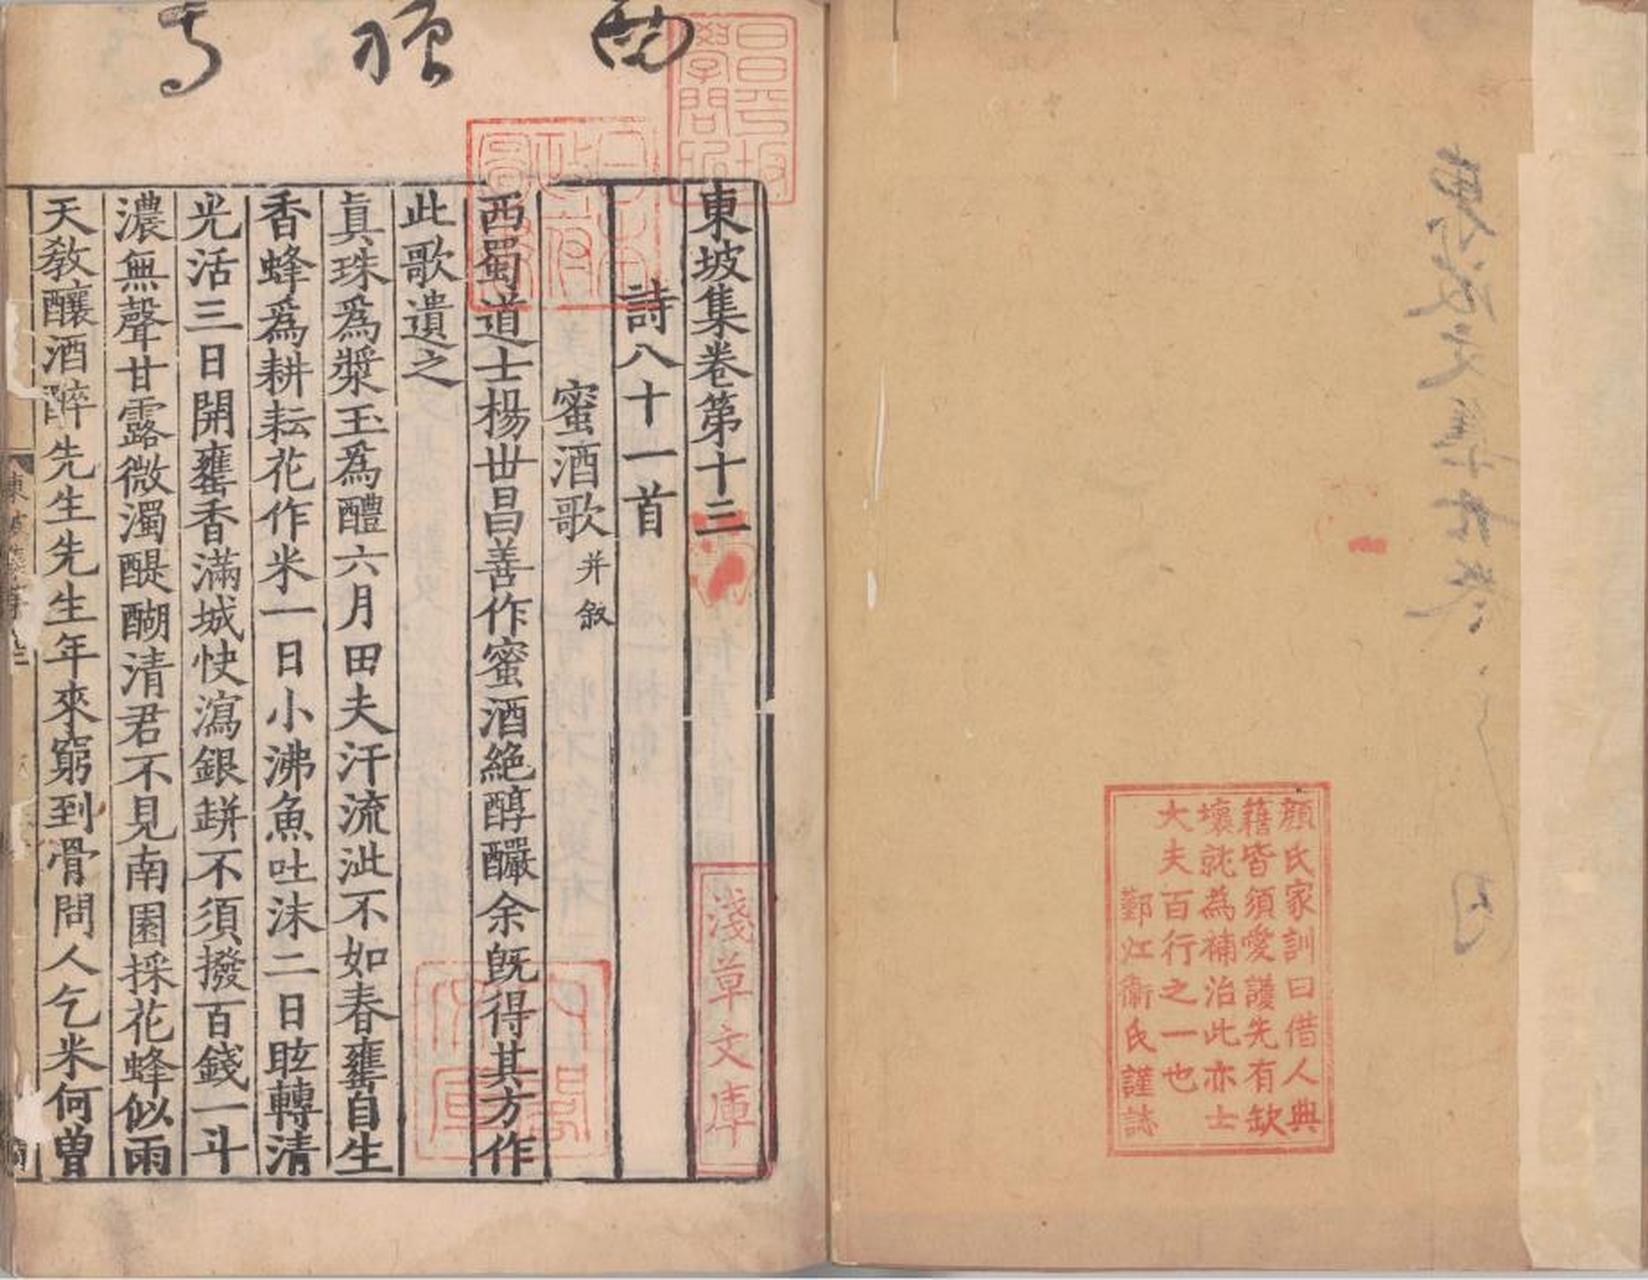 顔氏家訓曰借人典
籍皆須愛護先有缺
壞就為補治此亦士
大夫百行之一也
鄞江衞氏謹誌
昌平坂
學問所
日本
政府
圖書
淺草文庫
內閣
文庫
東坡集卷第十三
詩八十一首
蜜酒歌并叙
西蜀道士楊世昌善作蜜酒絶醇釅余旣得其方作
此歌遺之
眞珠爲漿玉爲醴六月田夫汗流泚不如春甕自生
香蜂爲耕耘花作米一日小沸魚吐沫二日眩轉清
光活三日開甕香滿城快瀉銀缾不須撥百錢一斗
濃無聲甘露微濁醍醐清君不見南園採花蜂似雨
天教釀酒醉先生先生年來窮到骨問人乞米何曽